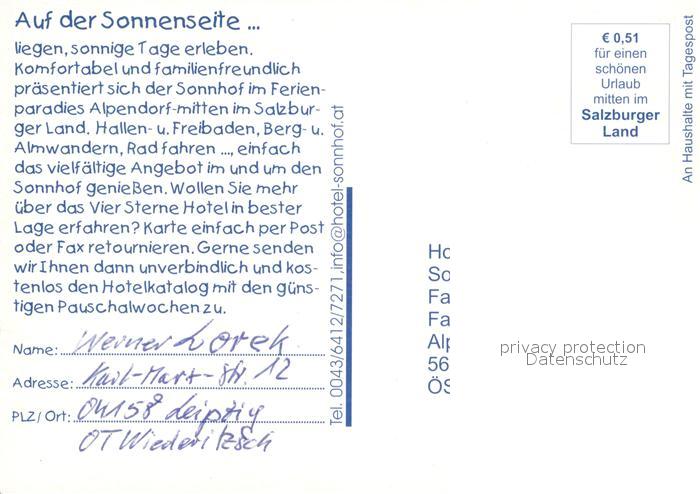 Auf der Sonnenseite ...
liegen, sonnige Tage erleben.
Komfortabel und familienfreundlich
präsentiert sich der Sonnhof im Ferien-
paradies Alpendorf-mitten im Salzbur-
ger Land. Hallen- u. Freibaden, Berg- u.
Almwandern, Rad fahren ..., einfach
das vielfältige Angebot im und um den
Sonnhof genießen. Wollen Sie mehr
über das Vier Sterne Hotel in bester
Lage erfahren? Karte einfach per Post
oder Fax retournieren. Gerne senden
wir Ihnen dann unverbindlich und kos-
tenlos den Hotelkatalog mit den güns-
tigen Pauschalwochen zu.
Name: Werner Lorek
Adresse: Karl-Marx-Str. 12
PLZ/Ort: 04158 Leipzig
OT Wiederitzsch
Tel. 0043/6412/7271, info@hotel-sonnhof.at
€ 0,51
für einen
schönen
Urlaub
mitten im
Salzburger
Land
An Haushalte mit Tagespost
Ho
So
Fa
Fa
Alp
56
ÖS
privacy protection
Datenschutz